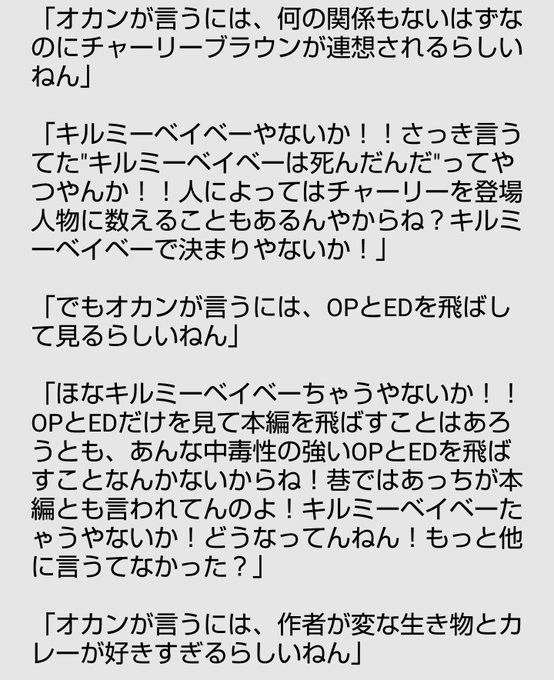 「オカンが言うには、何の関係もないはずな
のにチャーリーブラウンが連想されるらしい
ねん」
「キルミーベイベーやないか！！さっき言う
てた"キルミーベイベーは死んだんだ"ってや
つやんか！！人によってはチャーリーを登場
人物に数えることもあるんやからね？キルミ
ーベイベーで決まりやないか！」
「でもオカンが言うには、OPとEDを飛ばし
て見るらしいねん」
「ほなキルミーベイベーちゃうやないか！！
OPとEDだけを見て本編を飛ばすことはあろ
うとも、あんな中毒性の強いOPとEDを飛ば
すことなんかないからね！巷ではあっちが本
編とも言われてんのよ！キルミーベイベーた
ゃうやないか！どうなってんねん！もっと他
に言うてなかった？」
「オカンが言うには、作者が変な生き物とカ
レーが好きすぎるらしいねん」